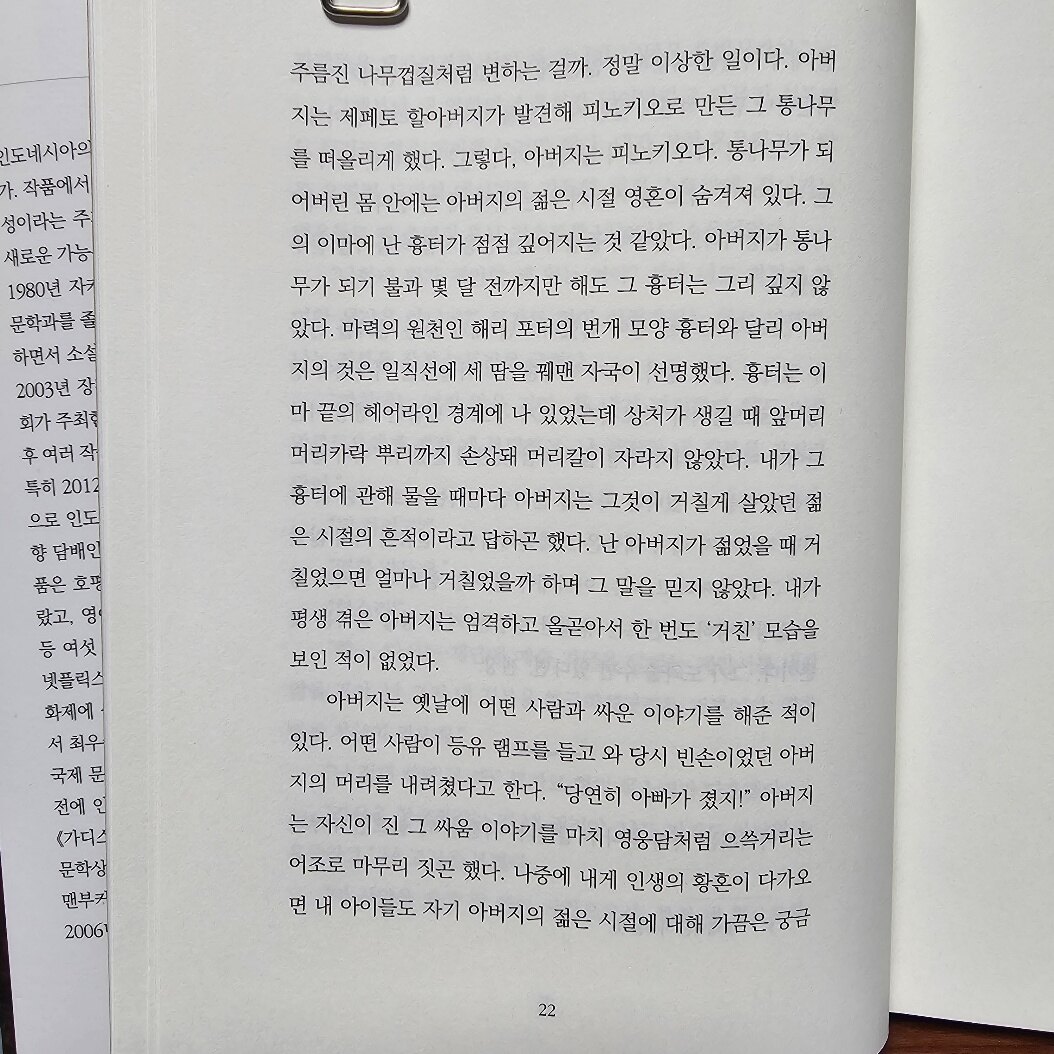 인도네시아의
가. 작품에서
성이라는 주
새로운 가능
1980년 자카
문학과를 졸
하면서 소설
2003년 장
회가 주최한
후 여러 작
특히 2012
으로 인도
향 담배인
품은 호평
랐고, 영어
등 여섯
넷플릭스
화제에
서 최우
국제 문
전에 인
《가디스
문학상
맨부커
2006년
주름진 나무껍질처럼 변하는 걸까. 정말 이상한 일이다. 아버
지는 제페토 할아버지가 발견해 피노키오로 만든 그 통나무
를 떠올리게 했다. 그렇다, 아버지는 피노키오다. 통나무가 되
어버린 몸 안에는 아버지의 젊은 시절 영혼이 숨겨져 있다. 그
의 이마에 난 흉터가 점점 깊어지는 것 같았다. 아버지가 통나
무가 되기 불과 몇 달 전까지만 해도 그 흉터는 그리 깊지 않
았다. 마력의 원천인 해리 포터의 번개 모양 흉터와 달리 아버
지의 것은 일직선에 세 땀을 꿰맨 자국이 선명했다. 흉터는 이
마 끝의 헤어라인 경계에 나 있었는데 상처가 생길 때 앞머리
머리카락 뿌리까지 손상돼 머리칼이 자라지 않았다. 내가 그
흉터에 관해 물을 때마다 아버지는 그것이 거칠게 살았던 젊
은 시절의 흔적이라고 답하곤 했다. 난 아버지가 젊었을 때 거
칠었으면 얼마나 거칠었을까 하며 그 말을 믿지 않았다. 내가
평생 겪은 아버지는 엄격하고 올곧아서 한 번도 ‘거친’ 모습을
보인 적이 없었다.
아버지는 옛날에 어떤 사람과 싸운 이야기를 해준 적이
있다. 어떤 사람이 등유 램프를 들고 와 당시 빈손이었던 아버
지의 머리를 내려쳤다고 한다. “당연히 아빠가 졌지!” 아버지
는 자신이 진 그 싸움 이야기를 마치 영웅담처럼 으쓱거리는
어조로 마무리 짓곤 했다. 나중에 내게 인생의 황혼이 다가오
면 내 아이들도 자기 아버지의 젊은 시절에 대해 가끔은 궁금
22